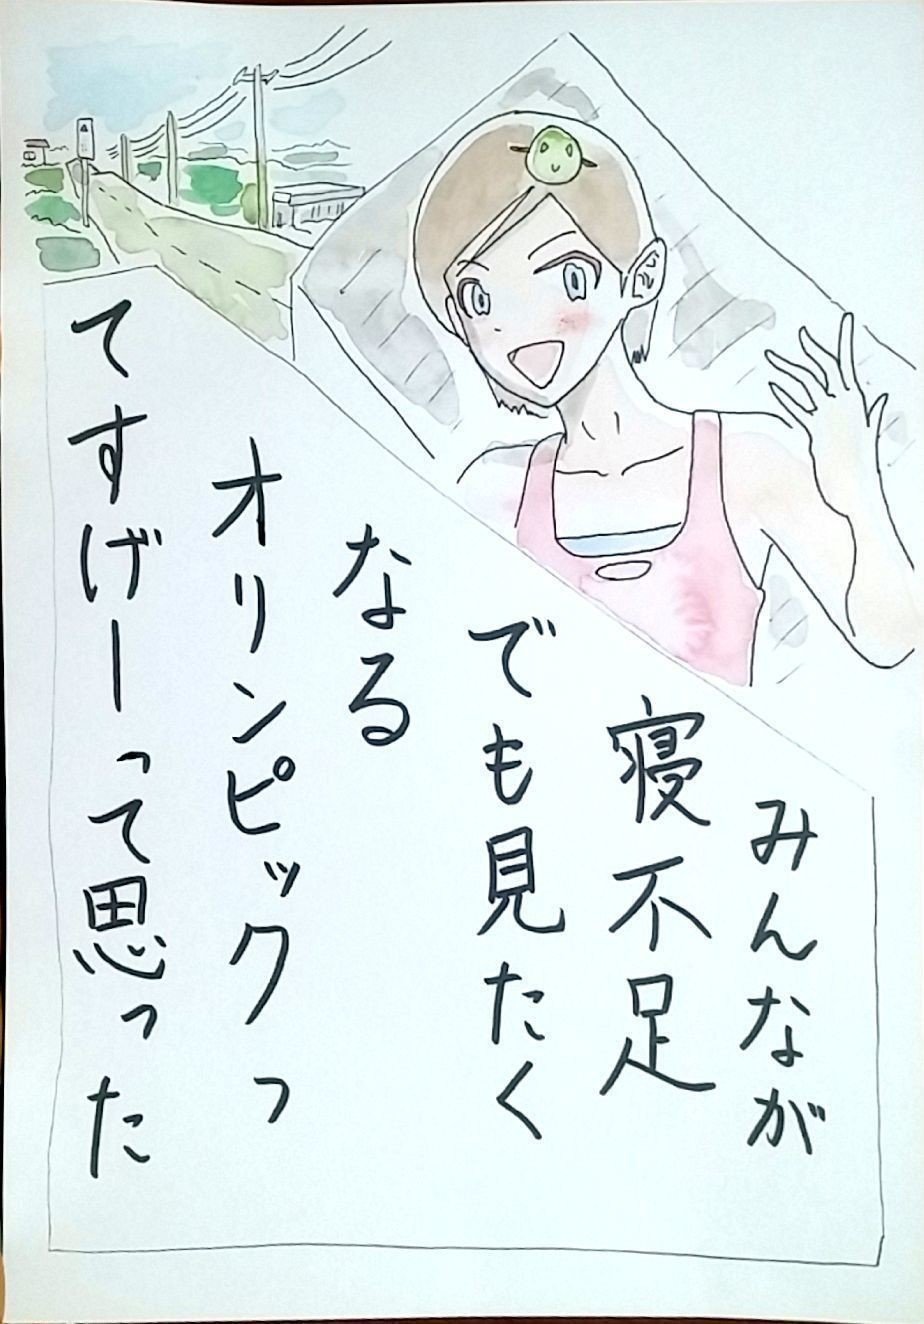 みんなが
寝不足
でも見たく
なる
オリンピックっ
てすげーって思った